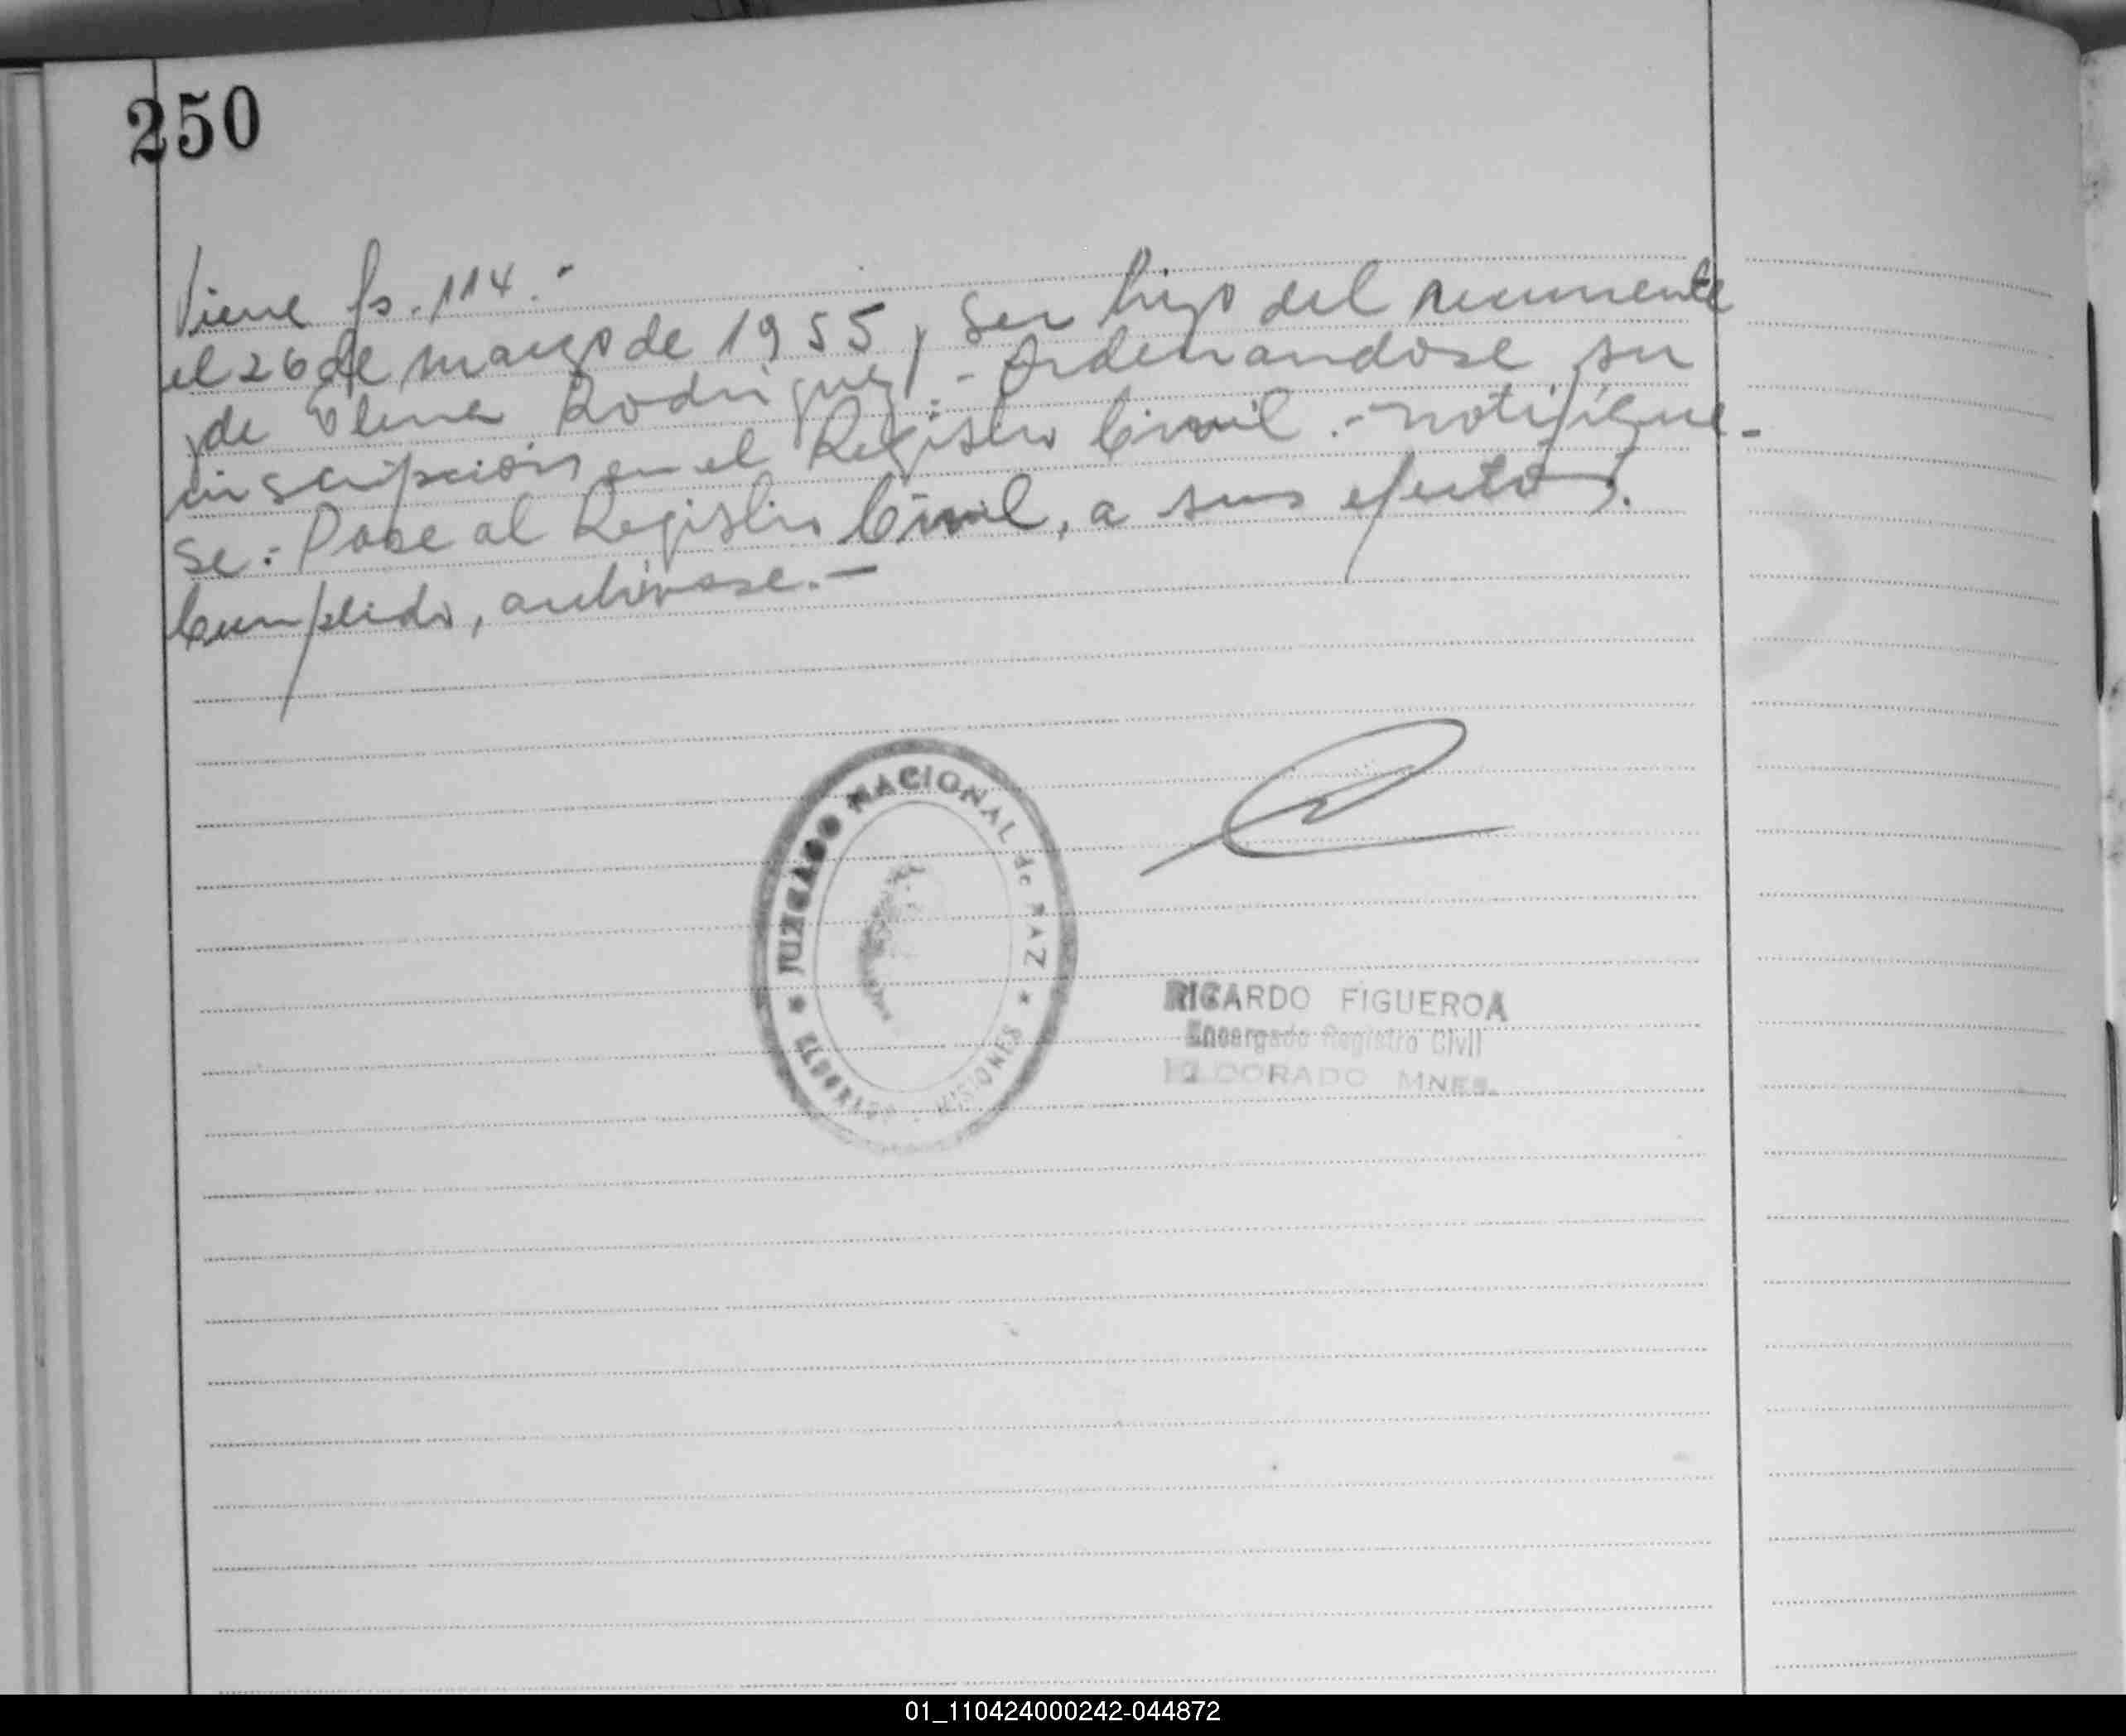 250
Viene fs. 114.-
el 26 de marzo de 1955, Ser hijo del recurrente
y de Elena Rodriguez.- Ordenandose su
inscripción en el Registro Civil.- notifique-
se.- Pase al Registro Civil, a sus efectos.
Cumplido, archivase.-
JUZGADO NACIONAL de PAZ
ELDORADO - MISIONES
RICARDO FIGUEROA
Encargado Registro Civil
ELDORADO MNES.
01_110424000242-044872